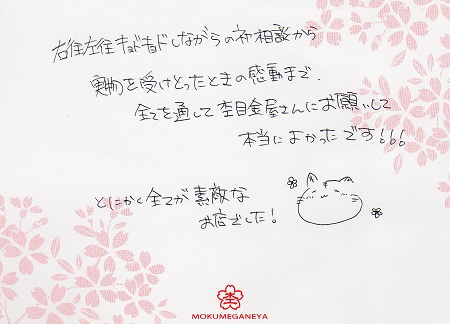 右往左往キョドキョドしながらの初相談から
実物を受けとったときの感動まで、
全てを通して杢目金屋さんにお願いして
本当によかったです!!!
とにかく全てが素敵な
お店でした!
杢
MOKUMEGANEYA